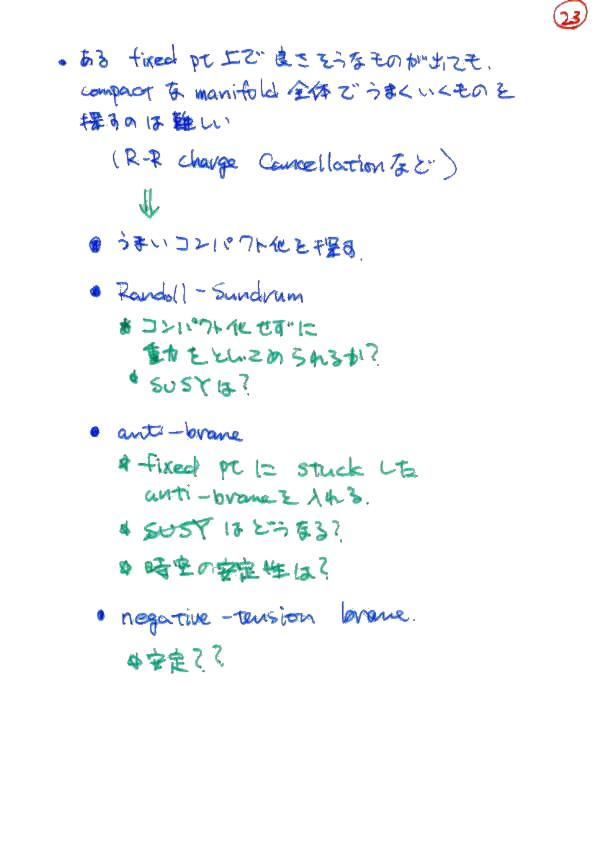 23
• ある fixed pt 上で 良さそうなものが出ても、
compact な manifold 全体でうまくいくものを
探すのは難しい
(R-R charge Cancellation など)
⇓
• うまいコンパクト化を探す.
• Randall-Sundrum
• コンパクト化せずに
重力をとじこめられるか?
• SUSYは?
• anti-brane
• fixed pt に stuck した
anti-braneを入れる.
• SUSY はどうなる?
• 時空の安定性は?
• negative-tension brane.
• 安定??